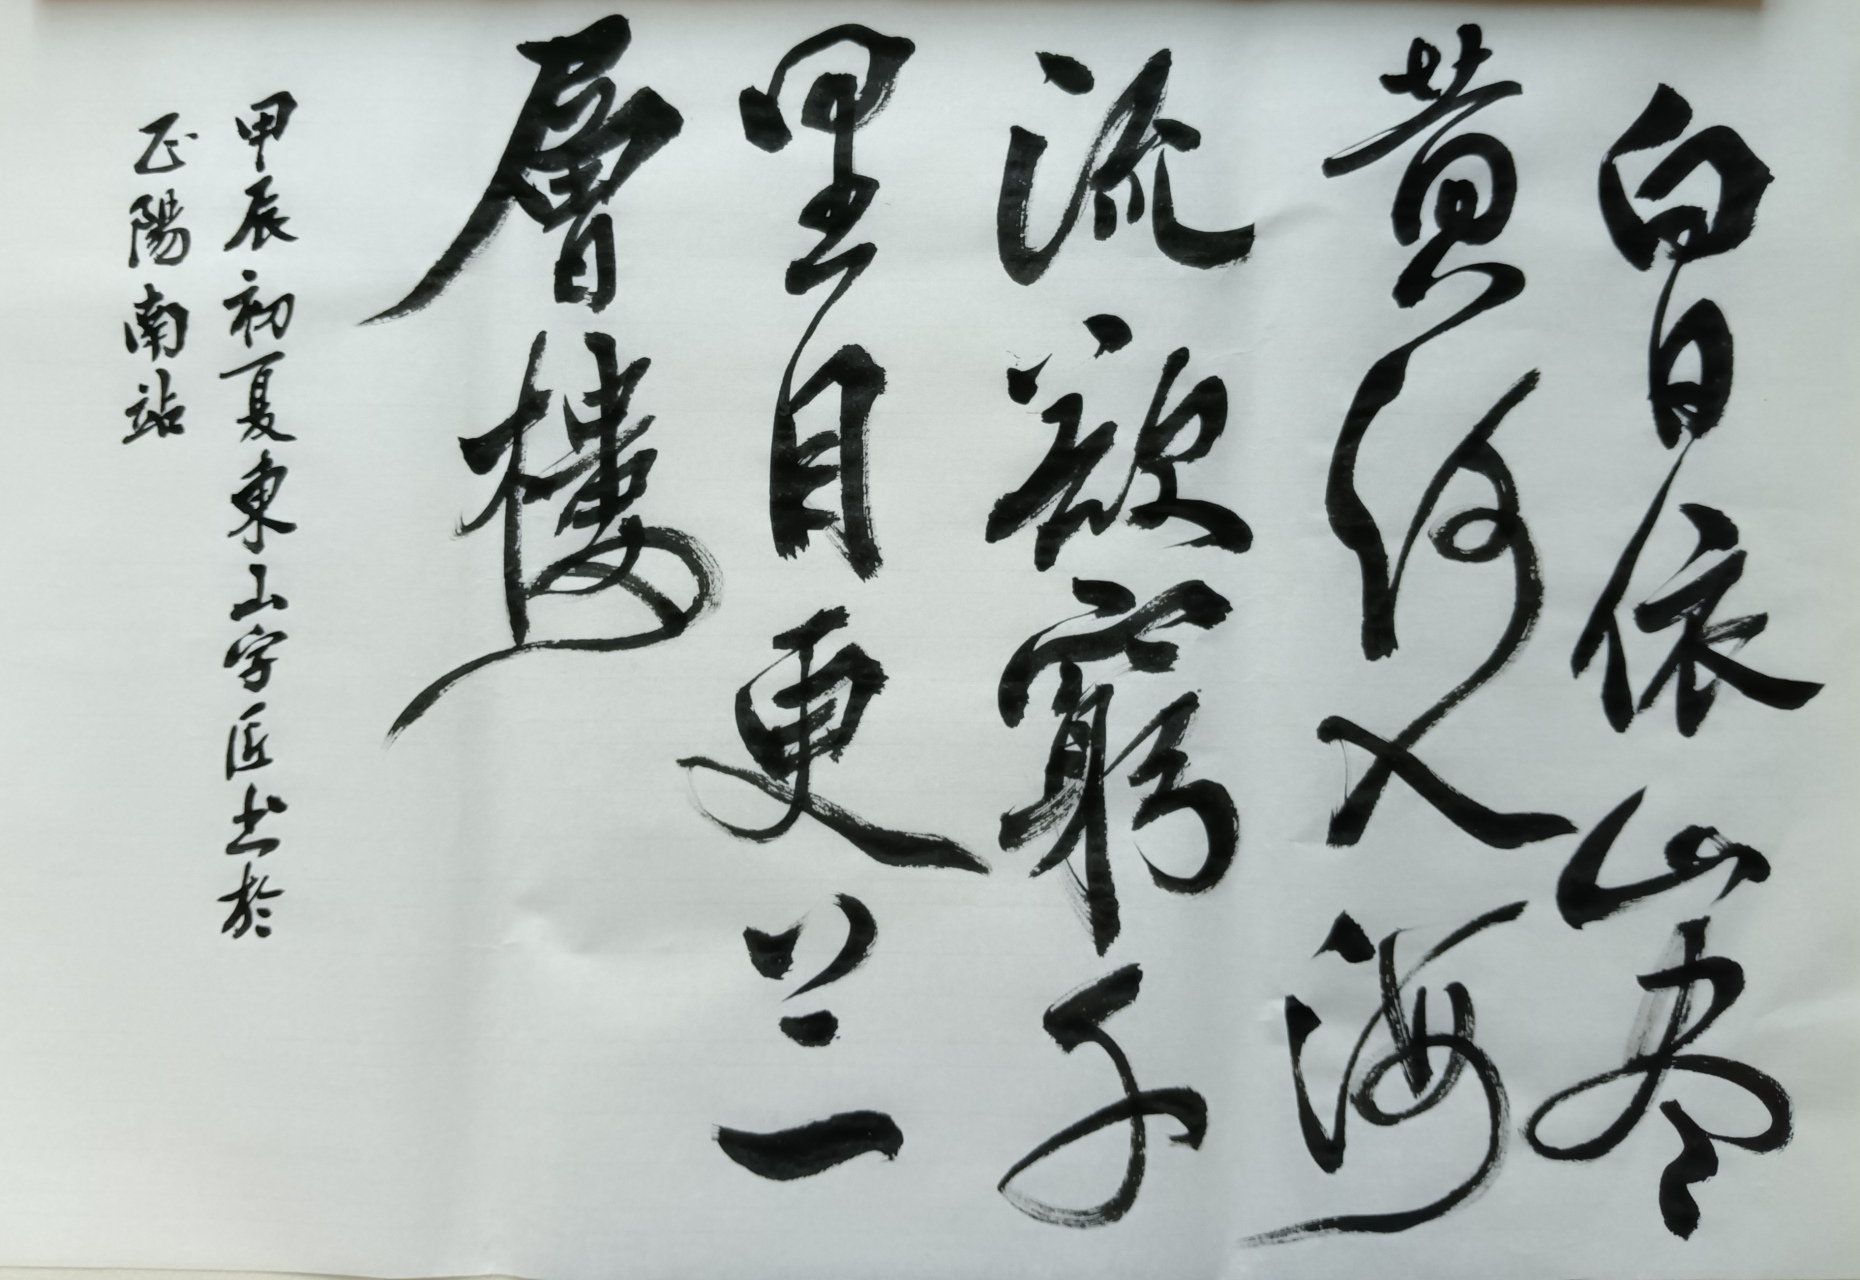 白日依山尽
黄河入海
流欲窮千
里目更上一
層樓
甲辰初夏東山字匠书於
正陽南站